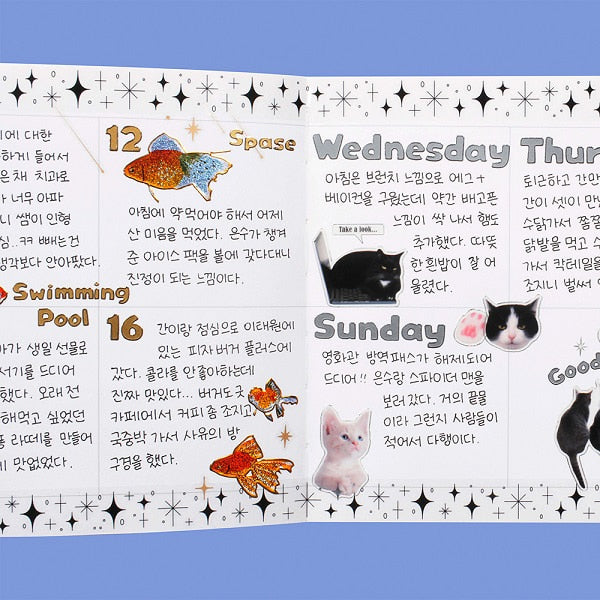 에 대한
하게 들어서
은채 치과로
가 너무 아파
니 쌤이 인형
심.. ㅋㅋ 빼는건
생각보다 안아팠다.
12
Spase
아침에 약먹어야 해서 어제
산 미음을 먹었다. 은수가 챙겨
준 아이스 팩을 볼에 갖다대니
진정이 되는 느낌이다.
Swimming
Pool
가 생일 선물로
서기를 드디어
했다. 오래 전
해먹고 싶었던
폼 라떼를 만들어
게 맛없었다.
16
간이랑 점심으로 이태원에
있는 피자버거 플러스에
갔다. 콜라를 안좋아하는데
진짜 맛있다... 버거도 굿
카페에서 커피 좀 조지고
국중박 가서 사유의 방
구경을 했다.
Wednesday
아침은 브런치 느낌으로 에그+
베이컨을 구웠는데 약간 배고픈
느낌이 싹 나서 햄도
추가했다. 따뜻
한 흰밥이 잘 어
울렸다.
Take a look...
Thur
퇴근하고 간만
간이 셋이 만
수닭가서 쭘
닭발을 먹고 수
가서 칵테일을
조지니 벌써
Sunday
영화관 방역패스가 해제되어
드디어!! 은수랑 스파이더 맨을
보러갔다. 거의 끝물
이라 그런지 사람들이
적어서 다행이다.
Good